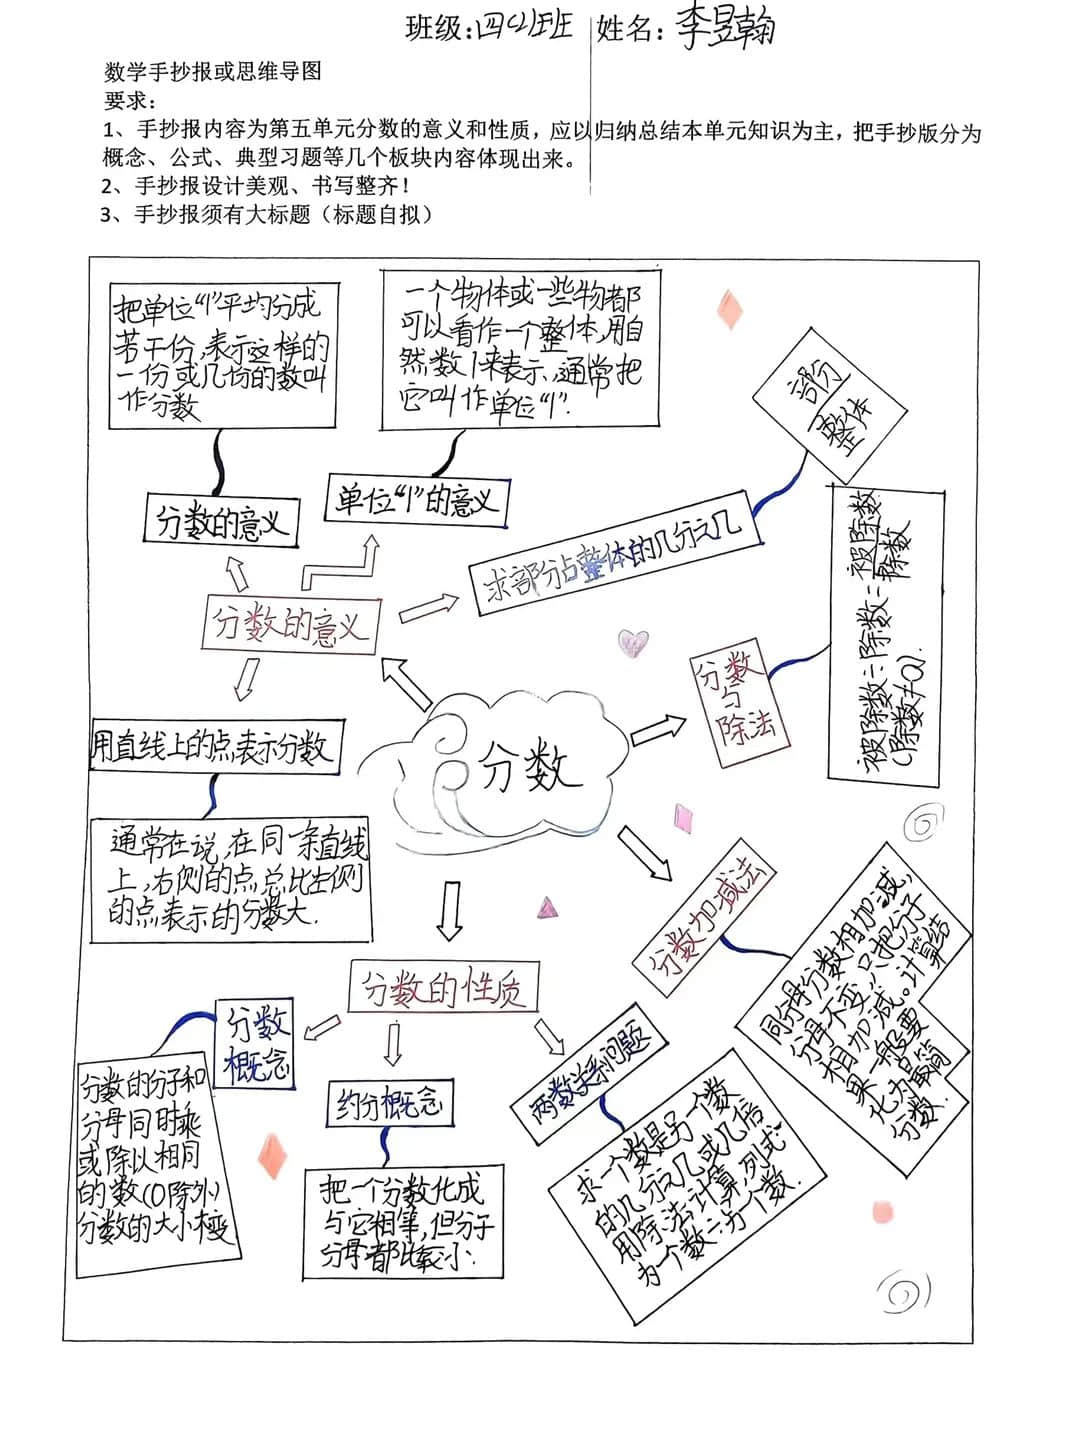 班级:四(2)班 姓名: 李昱翰
数学手抄报或思维导图
要求:
1、手抄报内容为第五单元分数的意义和性质，应以归纳总结本单元知识为主，把手抄版分为
概念、公式、典型习题等几个板块内容体现出来。
2、手抄报设计美观、书写整齐！
3、手抄报须有大标题（标题自拟）
把单位“1”平均分成
若干份,表示这样的
一份或几份的数叫
作分数
一个物体或一些物都
可以看作一个整体,用自
然数1来表示,通常把
它叫作单位“1”.
部分
整体
分数的意义
单位“1”的意义
求部分占整体的几分之几
分数的意义
分数
与
除法
被除数÷除数=被除数/除数
(除数≠0)
用直线上的点表示分数
分数
通常在说,在同一条直线
上,右侧的点总比左侧
的点表示的分数大.
分数加减法
同分母分数相加减,
分母不变,只把分子
相加减。计算结
果一般要
化为最简
分数.
分数的性质
分数
概念
约分概念
两数关系问题
分数的分子和
分母同时乘
或除以相同
的数(0除外)
分数的大小不变
把一个分数化成
与它相等,但分子
分母都比较小:
求一个数是另一个数
的几分之几或几倍
用除法计算,列式
为一个数÷另一个数.